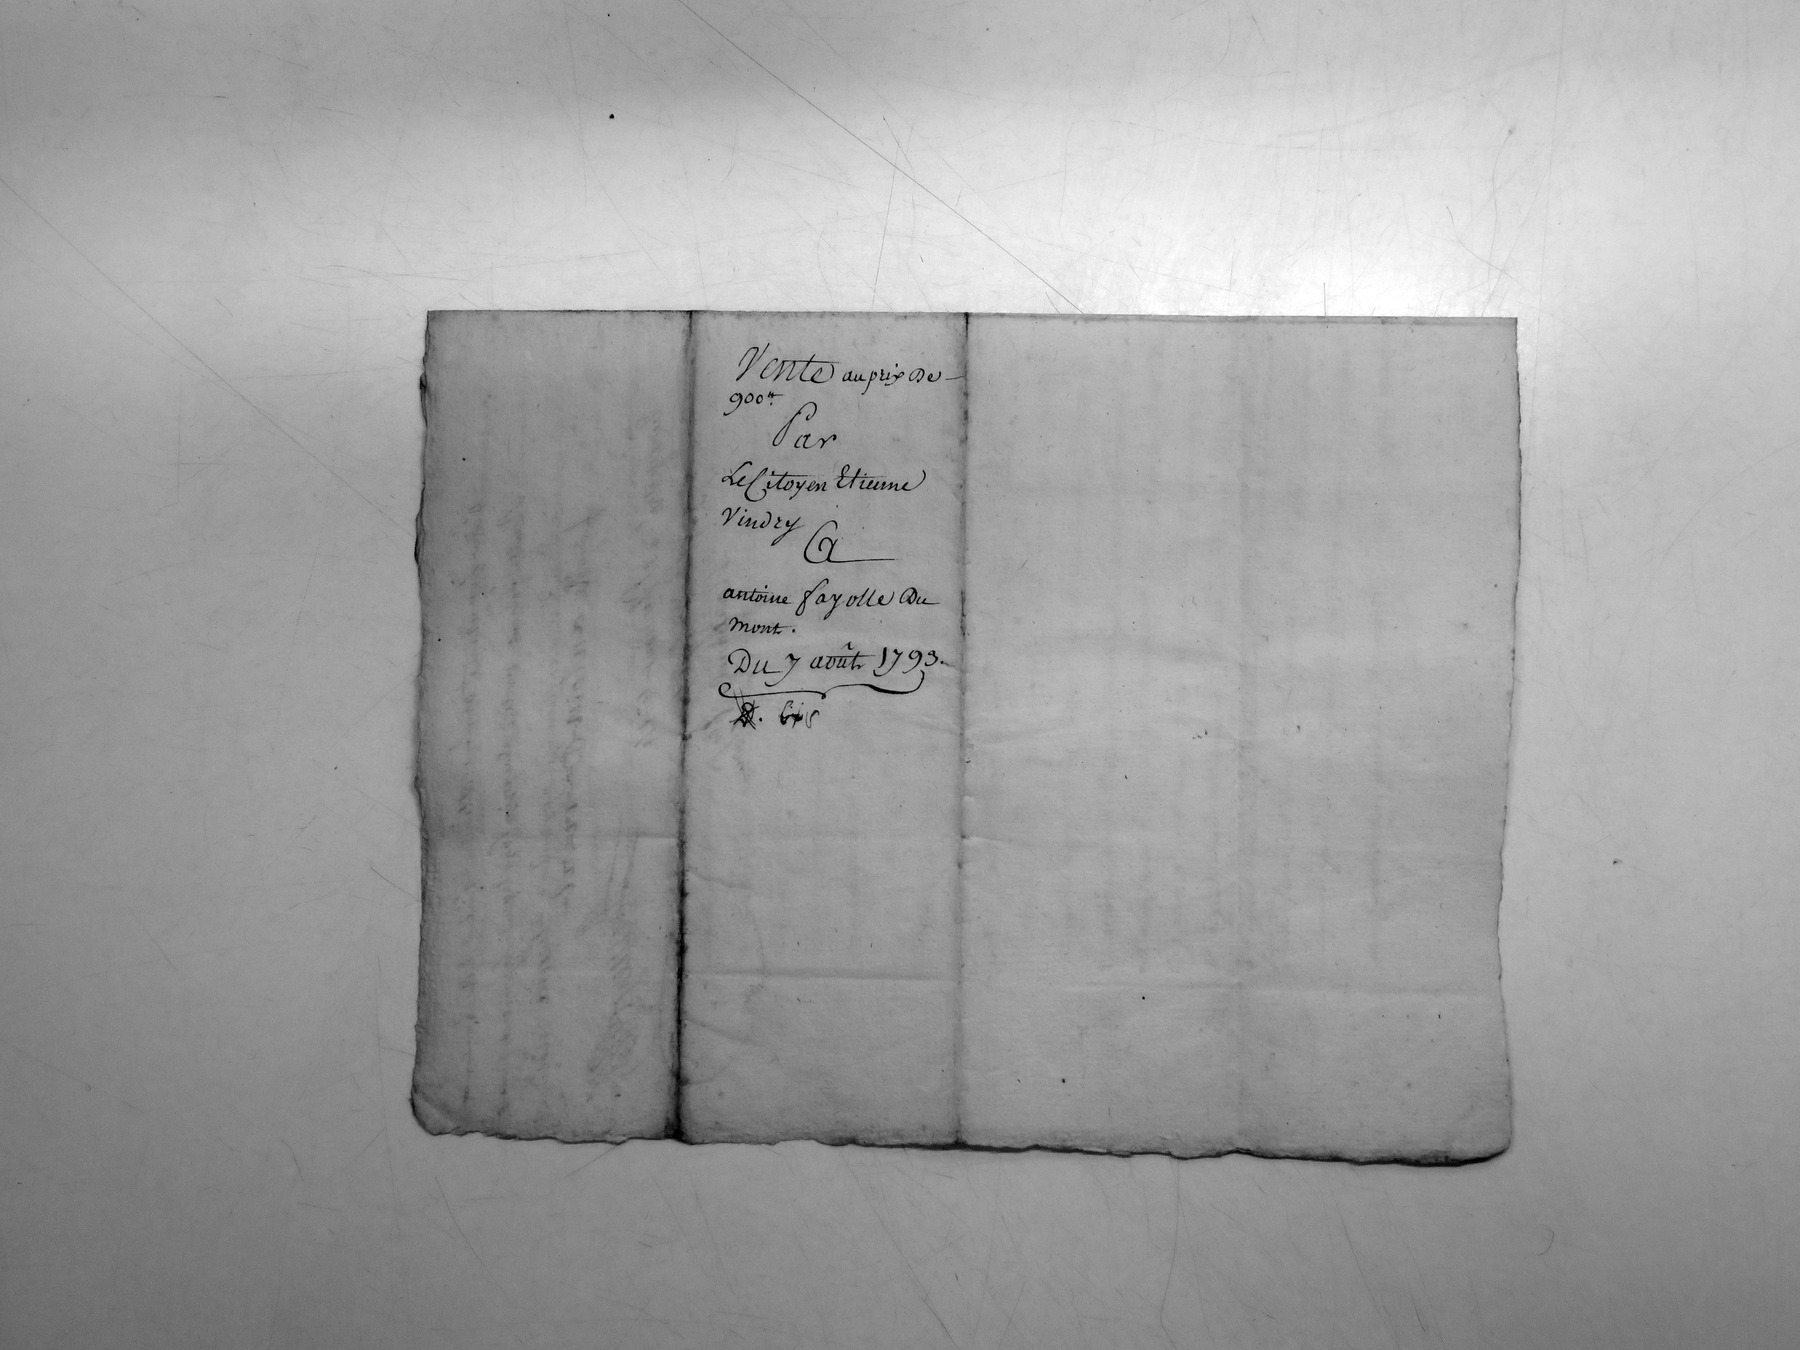 Vente au prix De
900tt
Par
Le Citoyen Etienne
Vindry
A
antoine fayolle Du
mont.
Du 7 août 1793.
bis